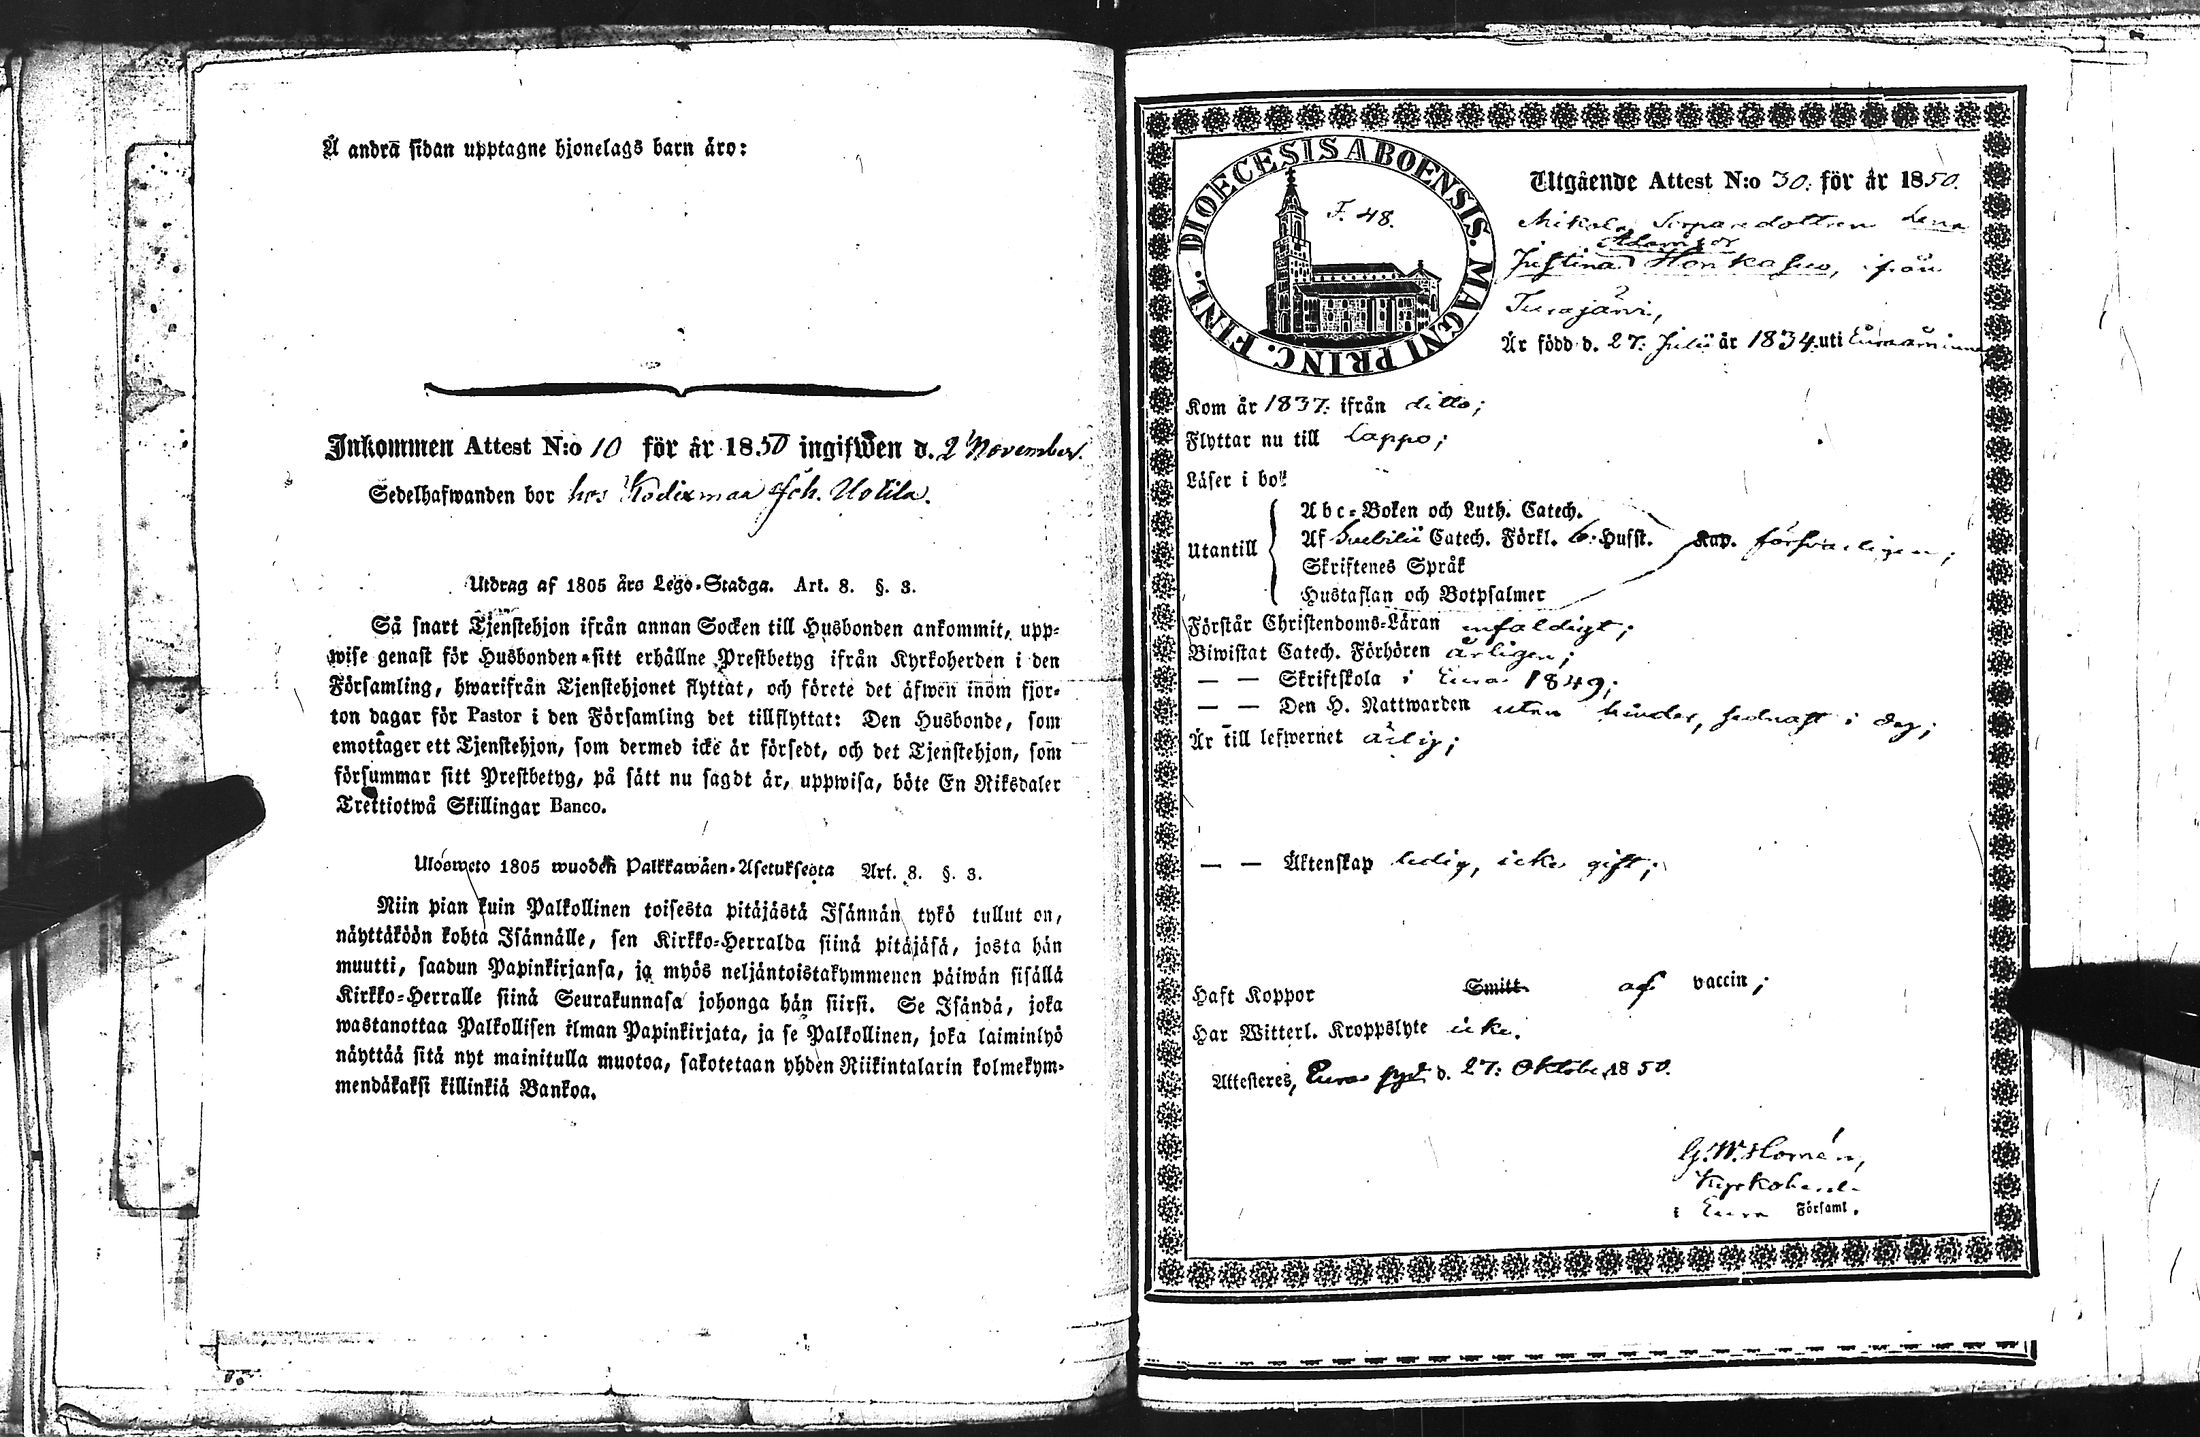 Å andra sidan upptagne hjonelags barn äro:
Inkommen Attest N:o 10 för år 1850 ingifwen d. 2 November.
Sedelhafwanden bor hos Kodixmaa Joh. Uotila.
Utdrag af 1805 års Lego-Stadga. Art. 8. §. 3.
Så snart Tjenstehjon ifrån annan Socken till Husbonden ankommit, upp-
wise genast för Husbonden sitt erhållne Prestbetyg ifrån Kyrkoherden i den
Församling, hwarifrån Tjenstehjonet flyttat, och förete det äfwen inom fjor-
ton dagar för Pastor i den Församling det tillflyttat: Den Husbonde, som
emottager ett Tjenstehjon, som dermed icke är försedt, och det Tjenstehjon, som
försummar sitt Prestbetyg, på sätt nu sagdt är, uppwisa, böte En Riksdaler
Trettiotwå Skillingar Banco.
Ulosweto 1805 wuoden Palkkawäen-Asetuksesta Art. 8. §. 3.
Niin pian kuin Palkollinen toisesta pitäjästä Isännän tykö tullut on,
näyttäköön kohta Isännälle, sen Kirkko-Herralda siinä pitäjäsä, josta hän
muutti, saadun Papinkirjansa, ja myös neljäntoistakymmenen päiwän sisällä
Kirkko-Herralle siinä Seurakunnasa johonga hän siirsi. Se Isändä, joka
wastanottaa Palkollisen ilman Papinkirjata, ja se Palkollinen, joka laiminlyö
näyttää sitä nyt mainitulla muotoa, sakotetaan yhden Riikintalarin kolmekym-
mendäkaksi killinkiä Bankoa.
DIOECESIS ABOENSIS. MAGNI PRINC. FINL.
F. 48.
Utgående Attest N:o 30. för år 1850.
Mikola Sexparedottren Lena
Adamsdr
Justina Honkasuo, från
Turajärvi,
Är född d. 27: Julii år 1834. uti Euraåminne
Kom år 1837: ifrån ditto;
Flyttar nu till Lappo;
Läser i bok
Utantill
Abc-Boken och Luth. Catech.
Af Svebilii Catech. Förkl. 6. Hufst. Kap. försvarligen;
Skriftenes Språk
Hustaflan och Botpsalmer
Förstår Christendoms-Läran enfaldigt;
Biwistat Catech. Förhören årligen;
— — Skriftskola i Eura 1849;
— — Den H. Nattwarden utan hinder, sednast i dag;
Är till lefwernet ärlig;
— — Äktenskap ledig, icke gift;
Haft Koppor Smitt. af vaccin;
Har Witterl. Kroppslyte icke.
Attesteres, Eura pgd. d. 27: Oktober 1850.
G. W. Homén,
Kyrkoherde
i Eura Församl.